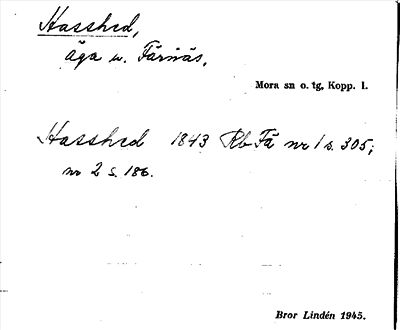 Hasshed,
äga u. Färnäs.
Mora sn o. tg, Kopp. l.
Hasshed 1843 Rb Fä nr 1 s. 305;
nr 2 s. 186.
Bror Lindén 1945.